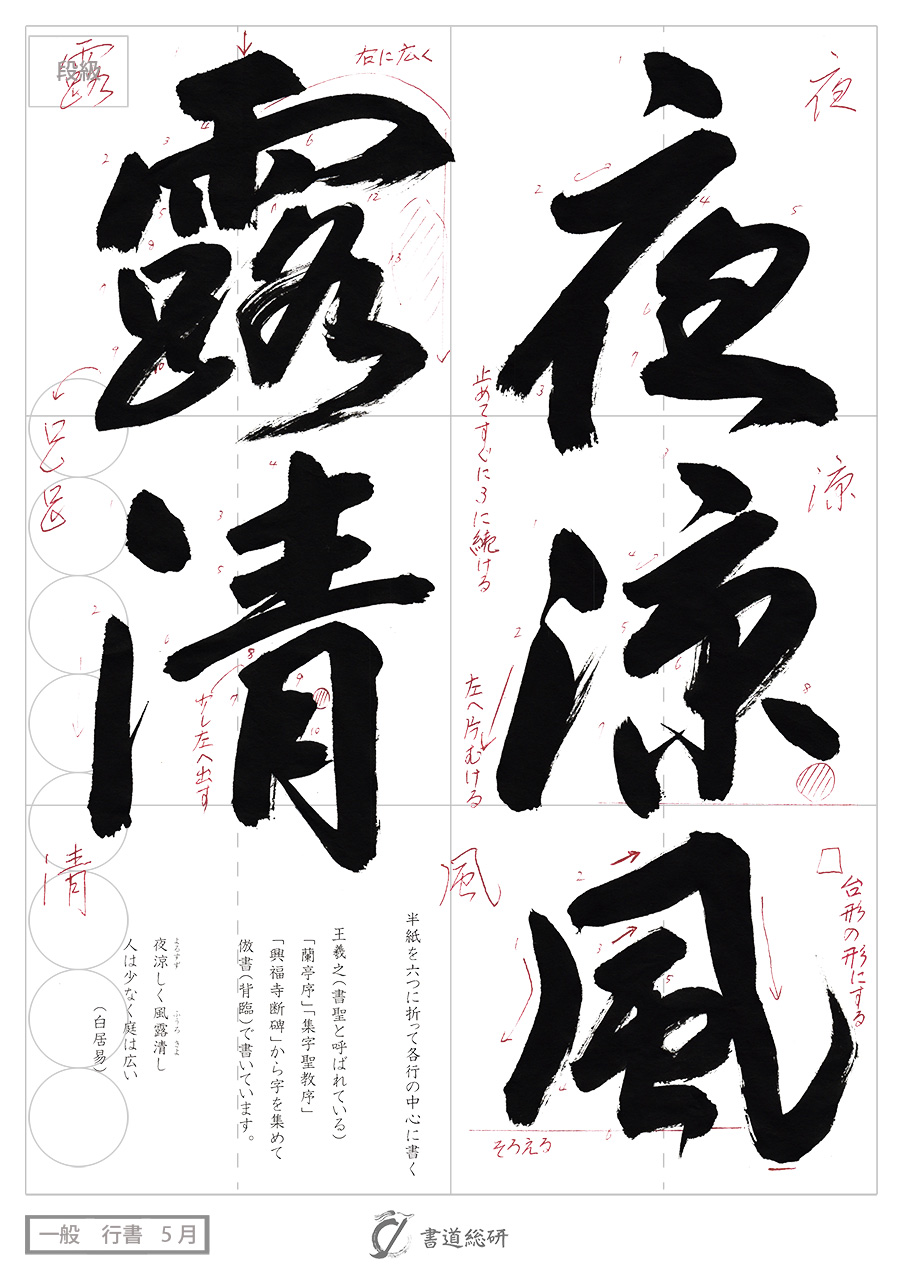 夜涼風
露清
夜
止めてすぐに3に続ける
涼
左へ片むける
台形の形にする
風
そろえる
右に広く
露
段級
少し左へ出す
清
半紙を六つに折って各行の中心に書く
王羲之(書聖と呼ばれている)
「蘭亭序」「集字聖教序」
「興福寺断碑」から字を集めて
倣書(背臨)で書いています。
夜涼しく風露清し
よるすず ふうろ きよ
人は少なく庭は広い
(白居易)
一般 行書 5月
書道総研